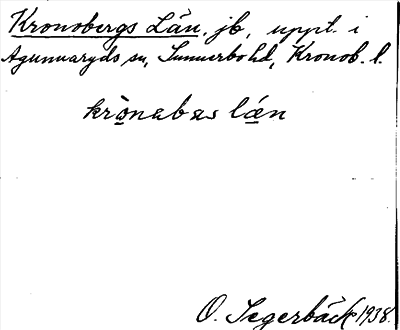 Kronobergs Län, jb, uppt. i
Agunnaryds sn, Sunnerbo hd, Kronob. l.
krònabas län
O. Segerbäck 1938.